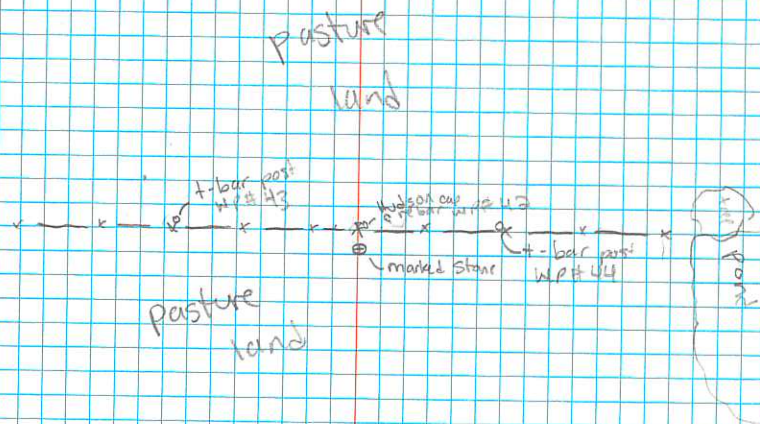 Pasture
land
t-bar post
WP# 43
Hudson cap
rebar WP# 42
marked Stone
t-bar post
WP# 44
pasture
land